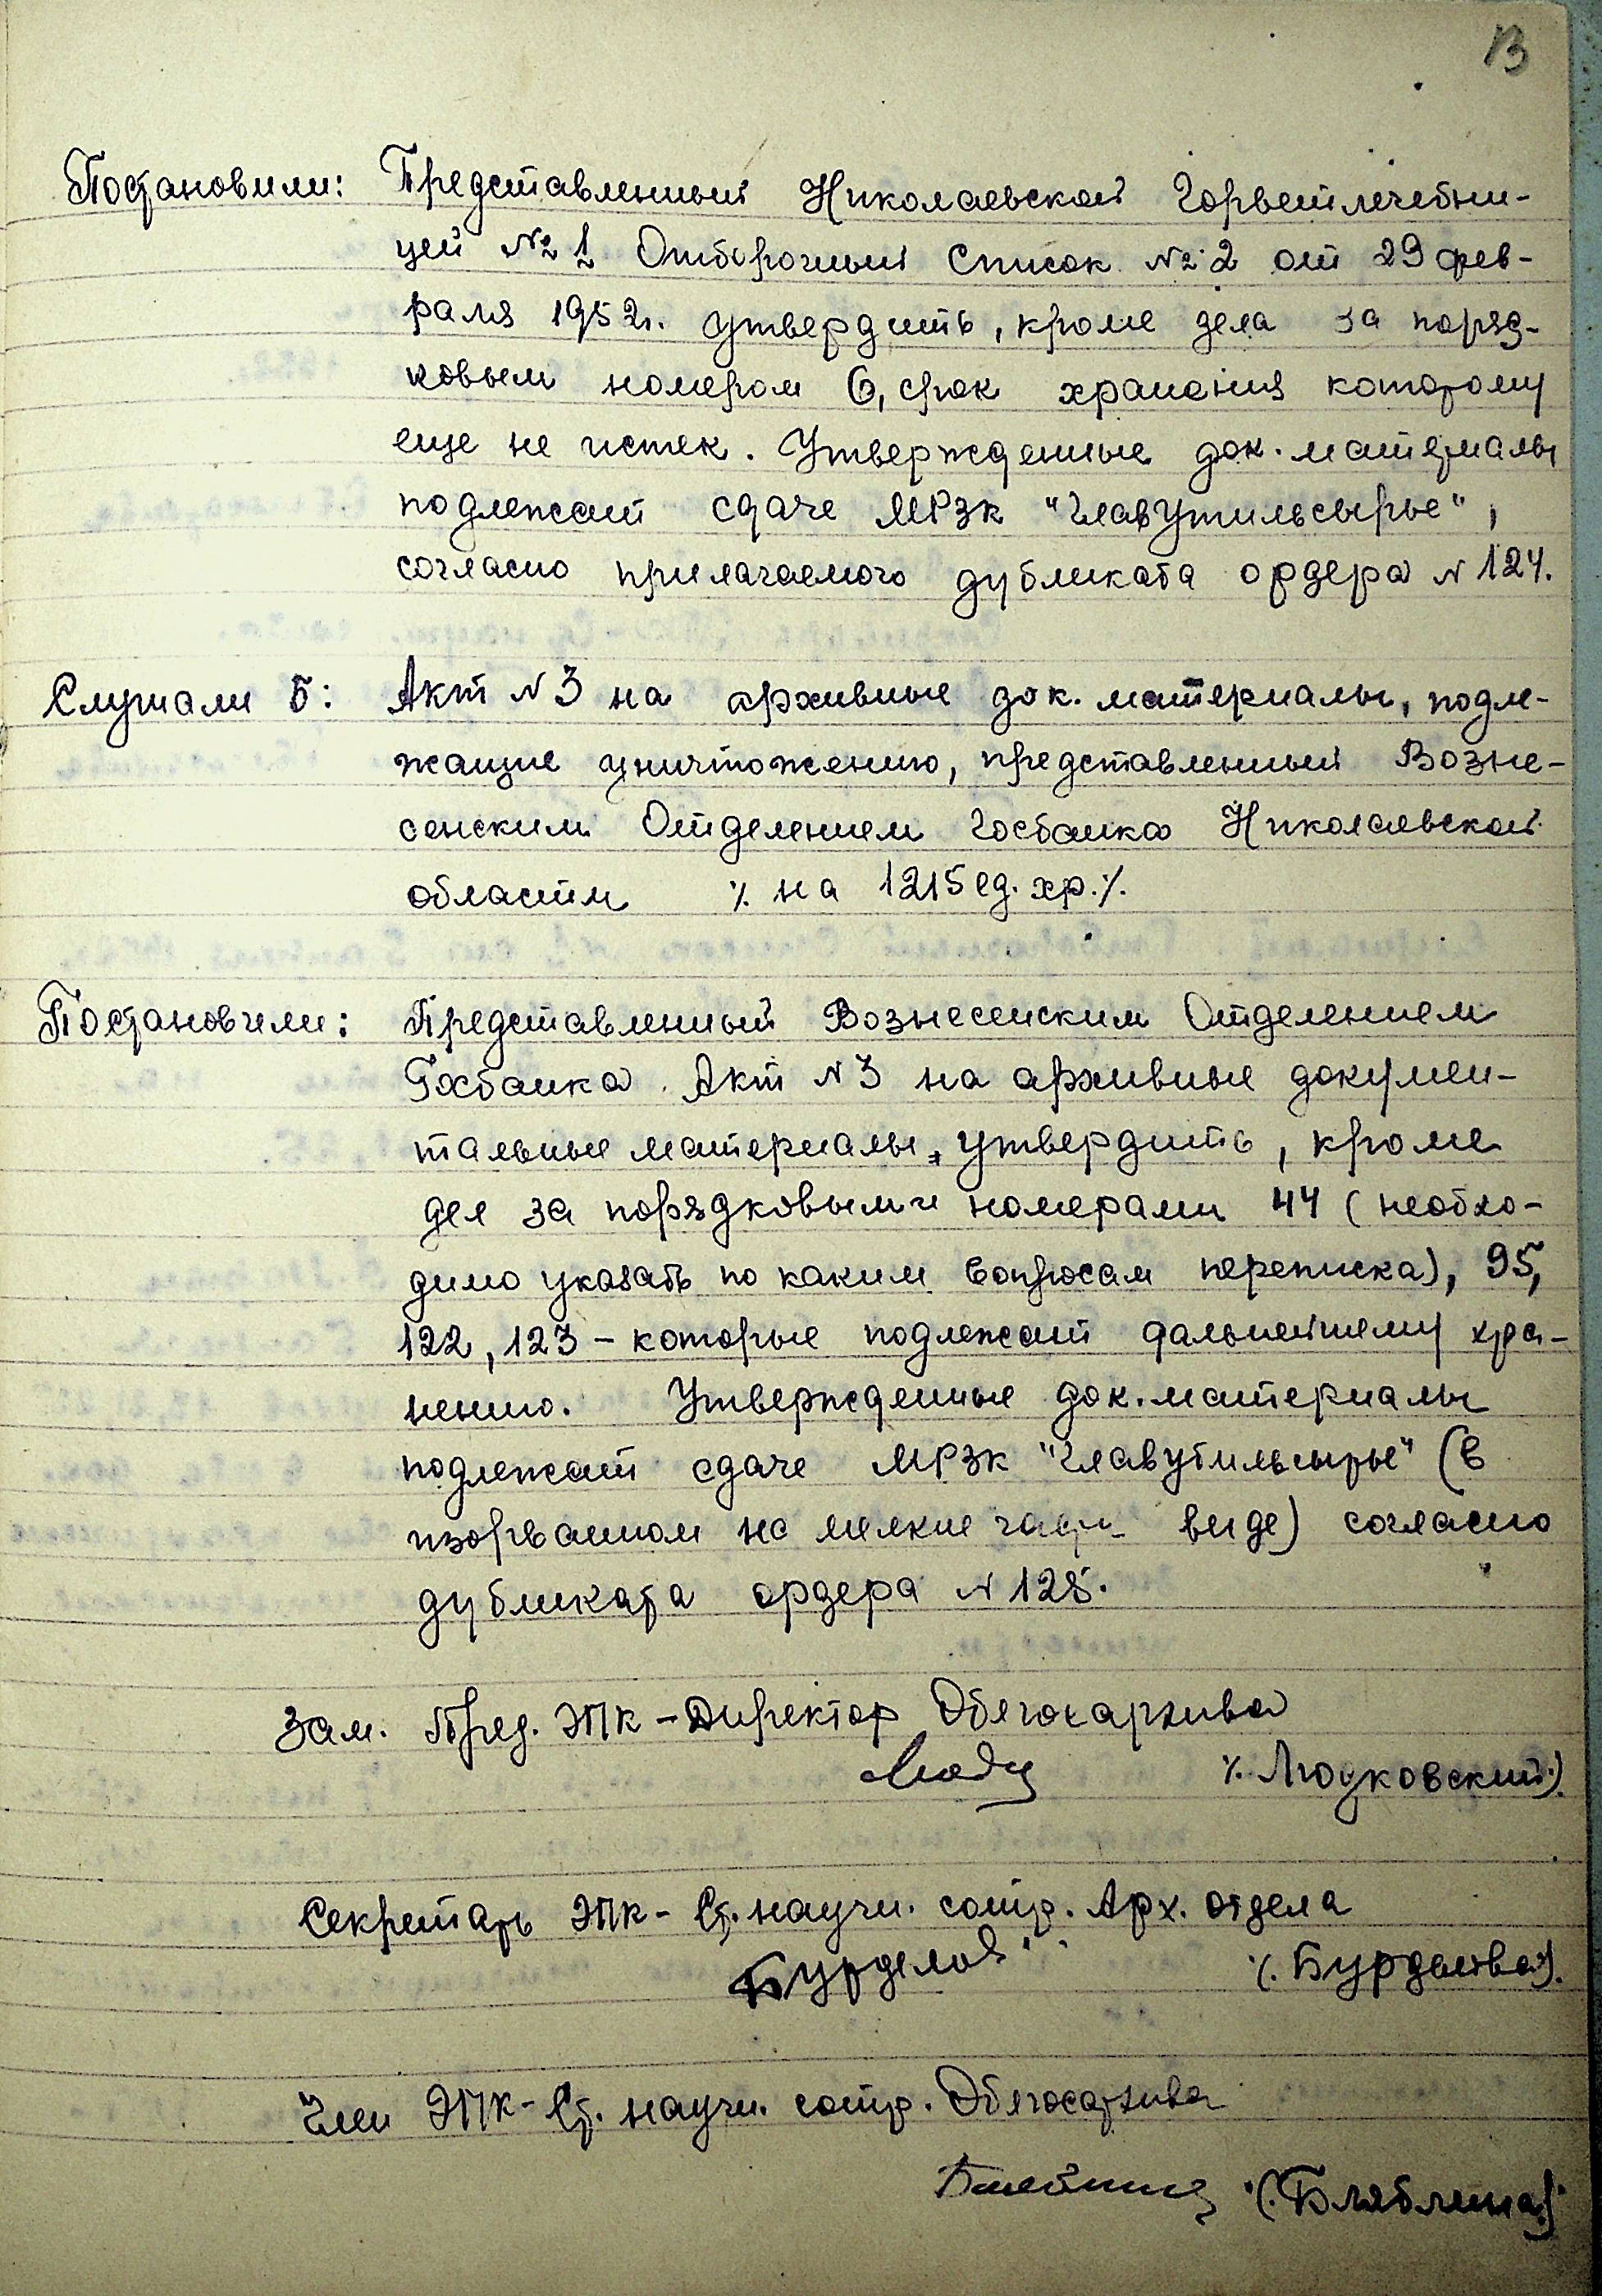 13
Постановили: Представленный Николаевской Горветлечебни-
цей №1 Отборочный Список №2 от 29 фев-
раля 1952г. утвердить, кроме дела за поряд-
ковым номером 6, срок хранения которому
еще не истек. Утвержденные док. материалы
подлежат сдаче МРЗК "Главутильсырье",
согласно прилагаемого дубликата ордера N 124.
Слушали 5: Акт N 3 на архивные док. материалы, подле-
жащие уничтожению, представленный Возне-
сенским Отделением Госбанка Николаевской
области ./. на 1215 ед. хр. ./.
Постановили: Представленный Вознесенским Отделением
Госбанка Акт N 3 на архивные докумен-
тальные материалы, утвердить, кроме
дел за порядковыми номерами 44 (необхо-
димо указать по каким вопросам переписка), 95,
122, 123 – которые подлежат дальнейшему хра-
нению. Утвержденные док. материалы
подлежат сдаче МРЗК "Главутильсырье" (в
изорванном на мелкие части виде) согласно
дубликата ордера N 125.
Зам. Пред. ЭПК – Директор Облгосархива
./. Людковский ./.
Секретарь ЭПК – Ст. научн. сотр. Арх. отдела
Бурделова ./. Бурделова ./.
Член ЭПК – Ст. научн. сотр. Облгосархива